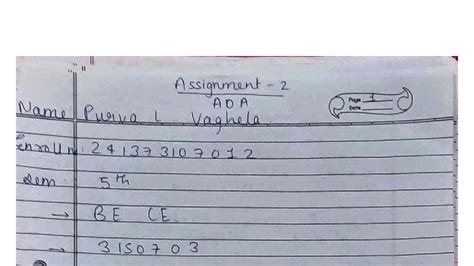 Assignment - 2
ADA
Page 1
Date
Name Purva L Vaghela
Enroll n. 241373107012
Sem 5th
→ BE CE
→ 3150703